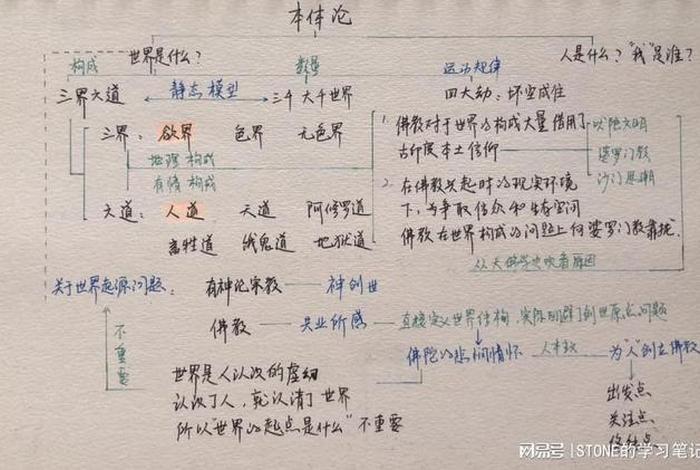 本体论
世界是什么？
人是什么？"我"是谁？
构成
数量
运动规律
三界六道
静态模型
三千大千世界
四大劫：坏空成住
三界：欲界 色界 无色界
地理构成
有情构成
六道：人道 天道 阿修罗道
畜牲道 饿鬼道 地狱道
1. 佛教对于世界的构成大量借用了
古印度本土信仰
吠陀文明
婆罗门教
沙门思潮
2. 在佛教兴起时的现实环境
下，为争取信众和生存空间
佛教在世界构成的问题上向婆罗门教靠拢
关于世界起源问题：
有神论宗教
神创世
佛教
共业所感
直接定义世界结构，实际回避了创世原点问题
不重要
佛陀的悲悯情怀
人本教
为"人"创立佛教
世界是人认次的虚幻
认次了人，就认清了世界
所以"世界的起点是什么"不重要
出发点
关注点
终结点
网易号 | STONE的学习笔记